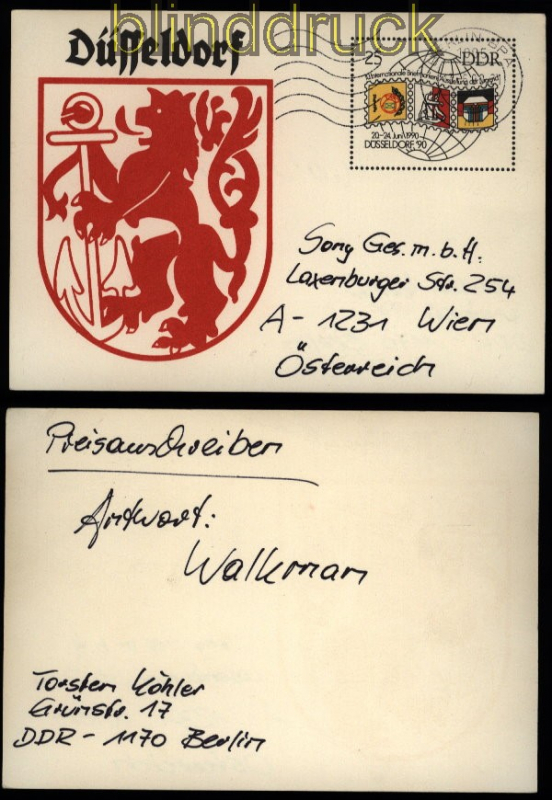 blinddruck
Düsseldorf
25 DDR
10. Internationale Briefmarken-Ausstellung der Jugend
20.-24. Juni 1990
DÜSSELDORF '90
Sony Ges.m.b.H.
Laxenburger Str. 254
A - 1231 Wien
Österreich
Preisausschreiben
Antwort:
Walkman
Torsten Köhler
Grünstr. 17
DDR - 1170 Berlin